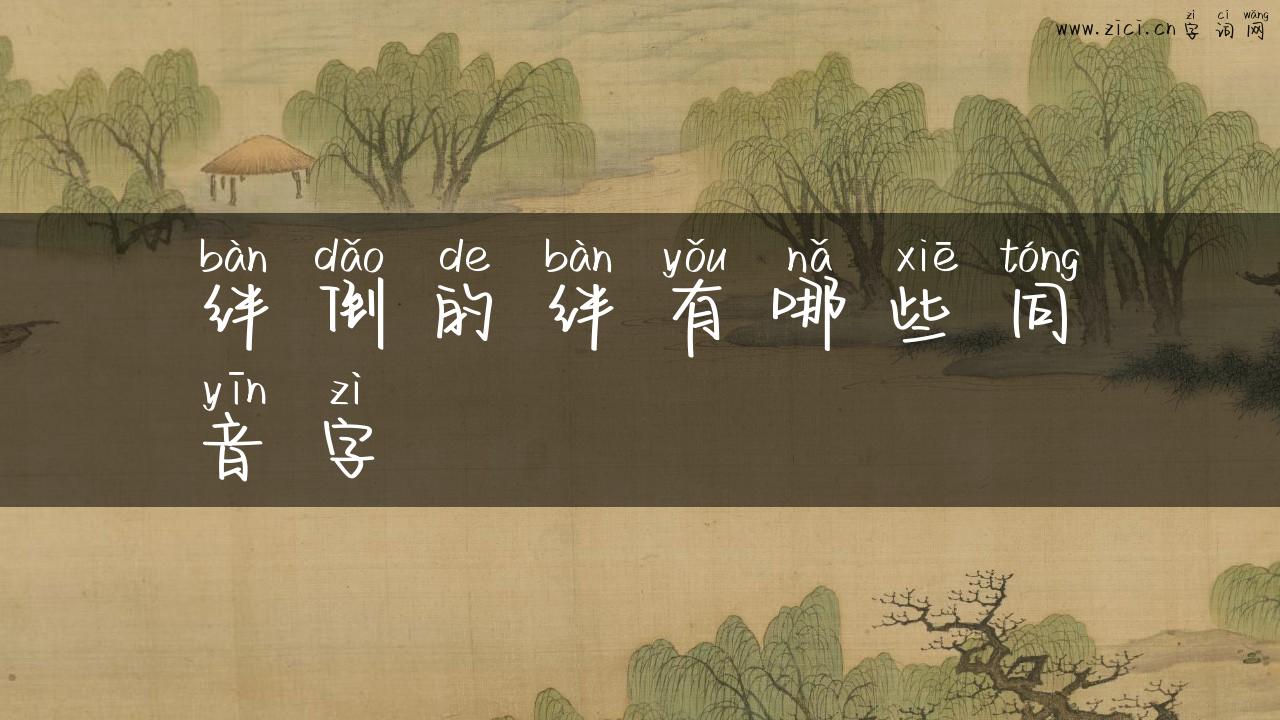 zì cí wǎng
www.zici.cn 字词网
bàn dǎo de bàn yǒu nǎ xiē tóng
绊倒的绊有哪些同
yīn zì
音字